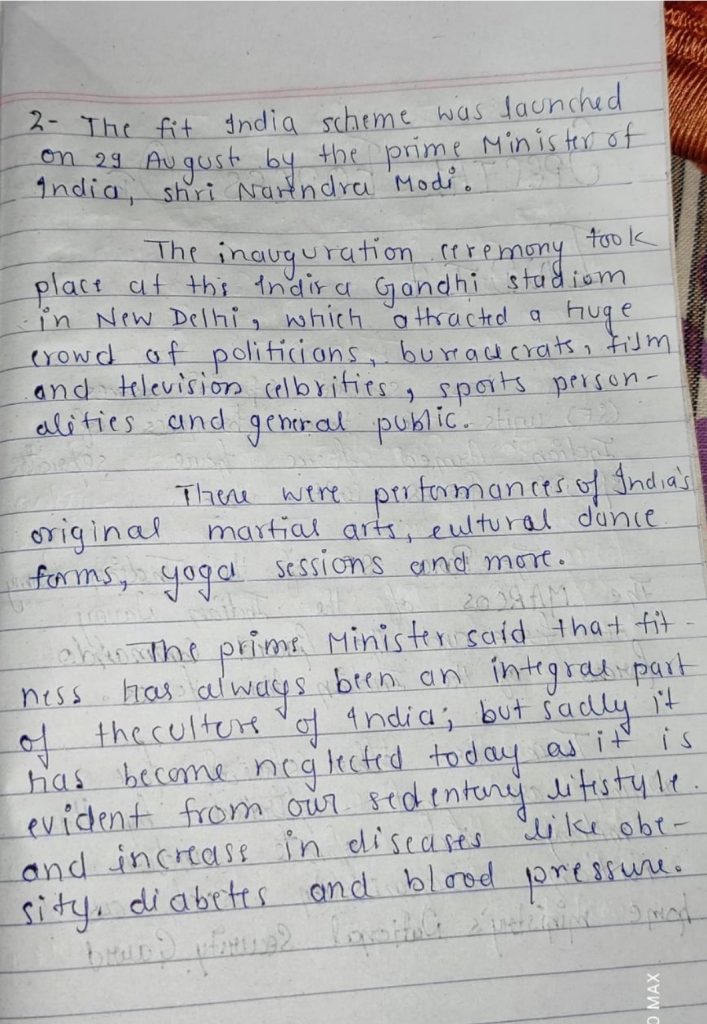 2- The fit India scheme was launched
on 29 August by the prime Minister of
India, shri Narendra Modi.
The inauguration ceremony took
place at the Indira Gandhi stadiom
in New Delhi, which attracted a huge
crowd of politicians, bureaucrats, film
and television celbrities, sports person-
alities and general public.
There were performances of India's
original martial arts, cultural dance
forms, yoga sessions and more.
The prime Minister said that fit-
ness has always been an integral part
of the culture of India; but sadly it
has become neglected today as it is
evident from our sedentary lifestyle.
and increase in diseases like obe-
sity, diabetes and blood pressure.